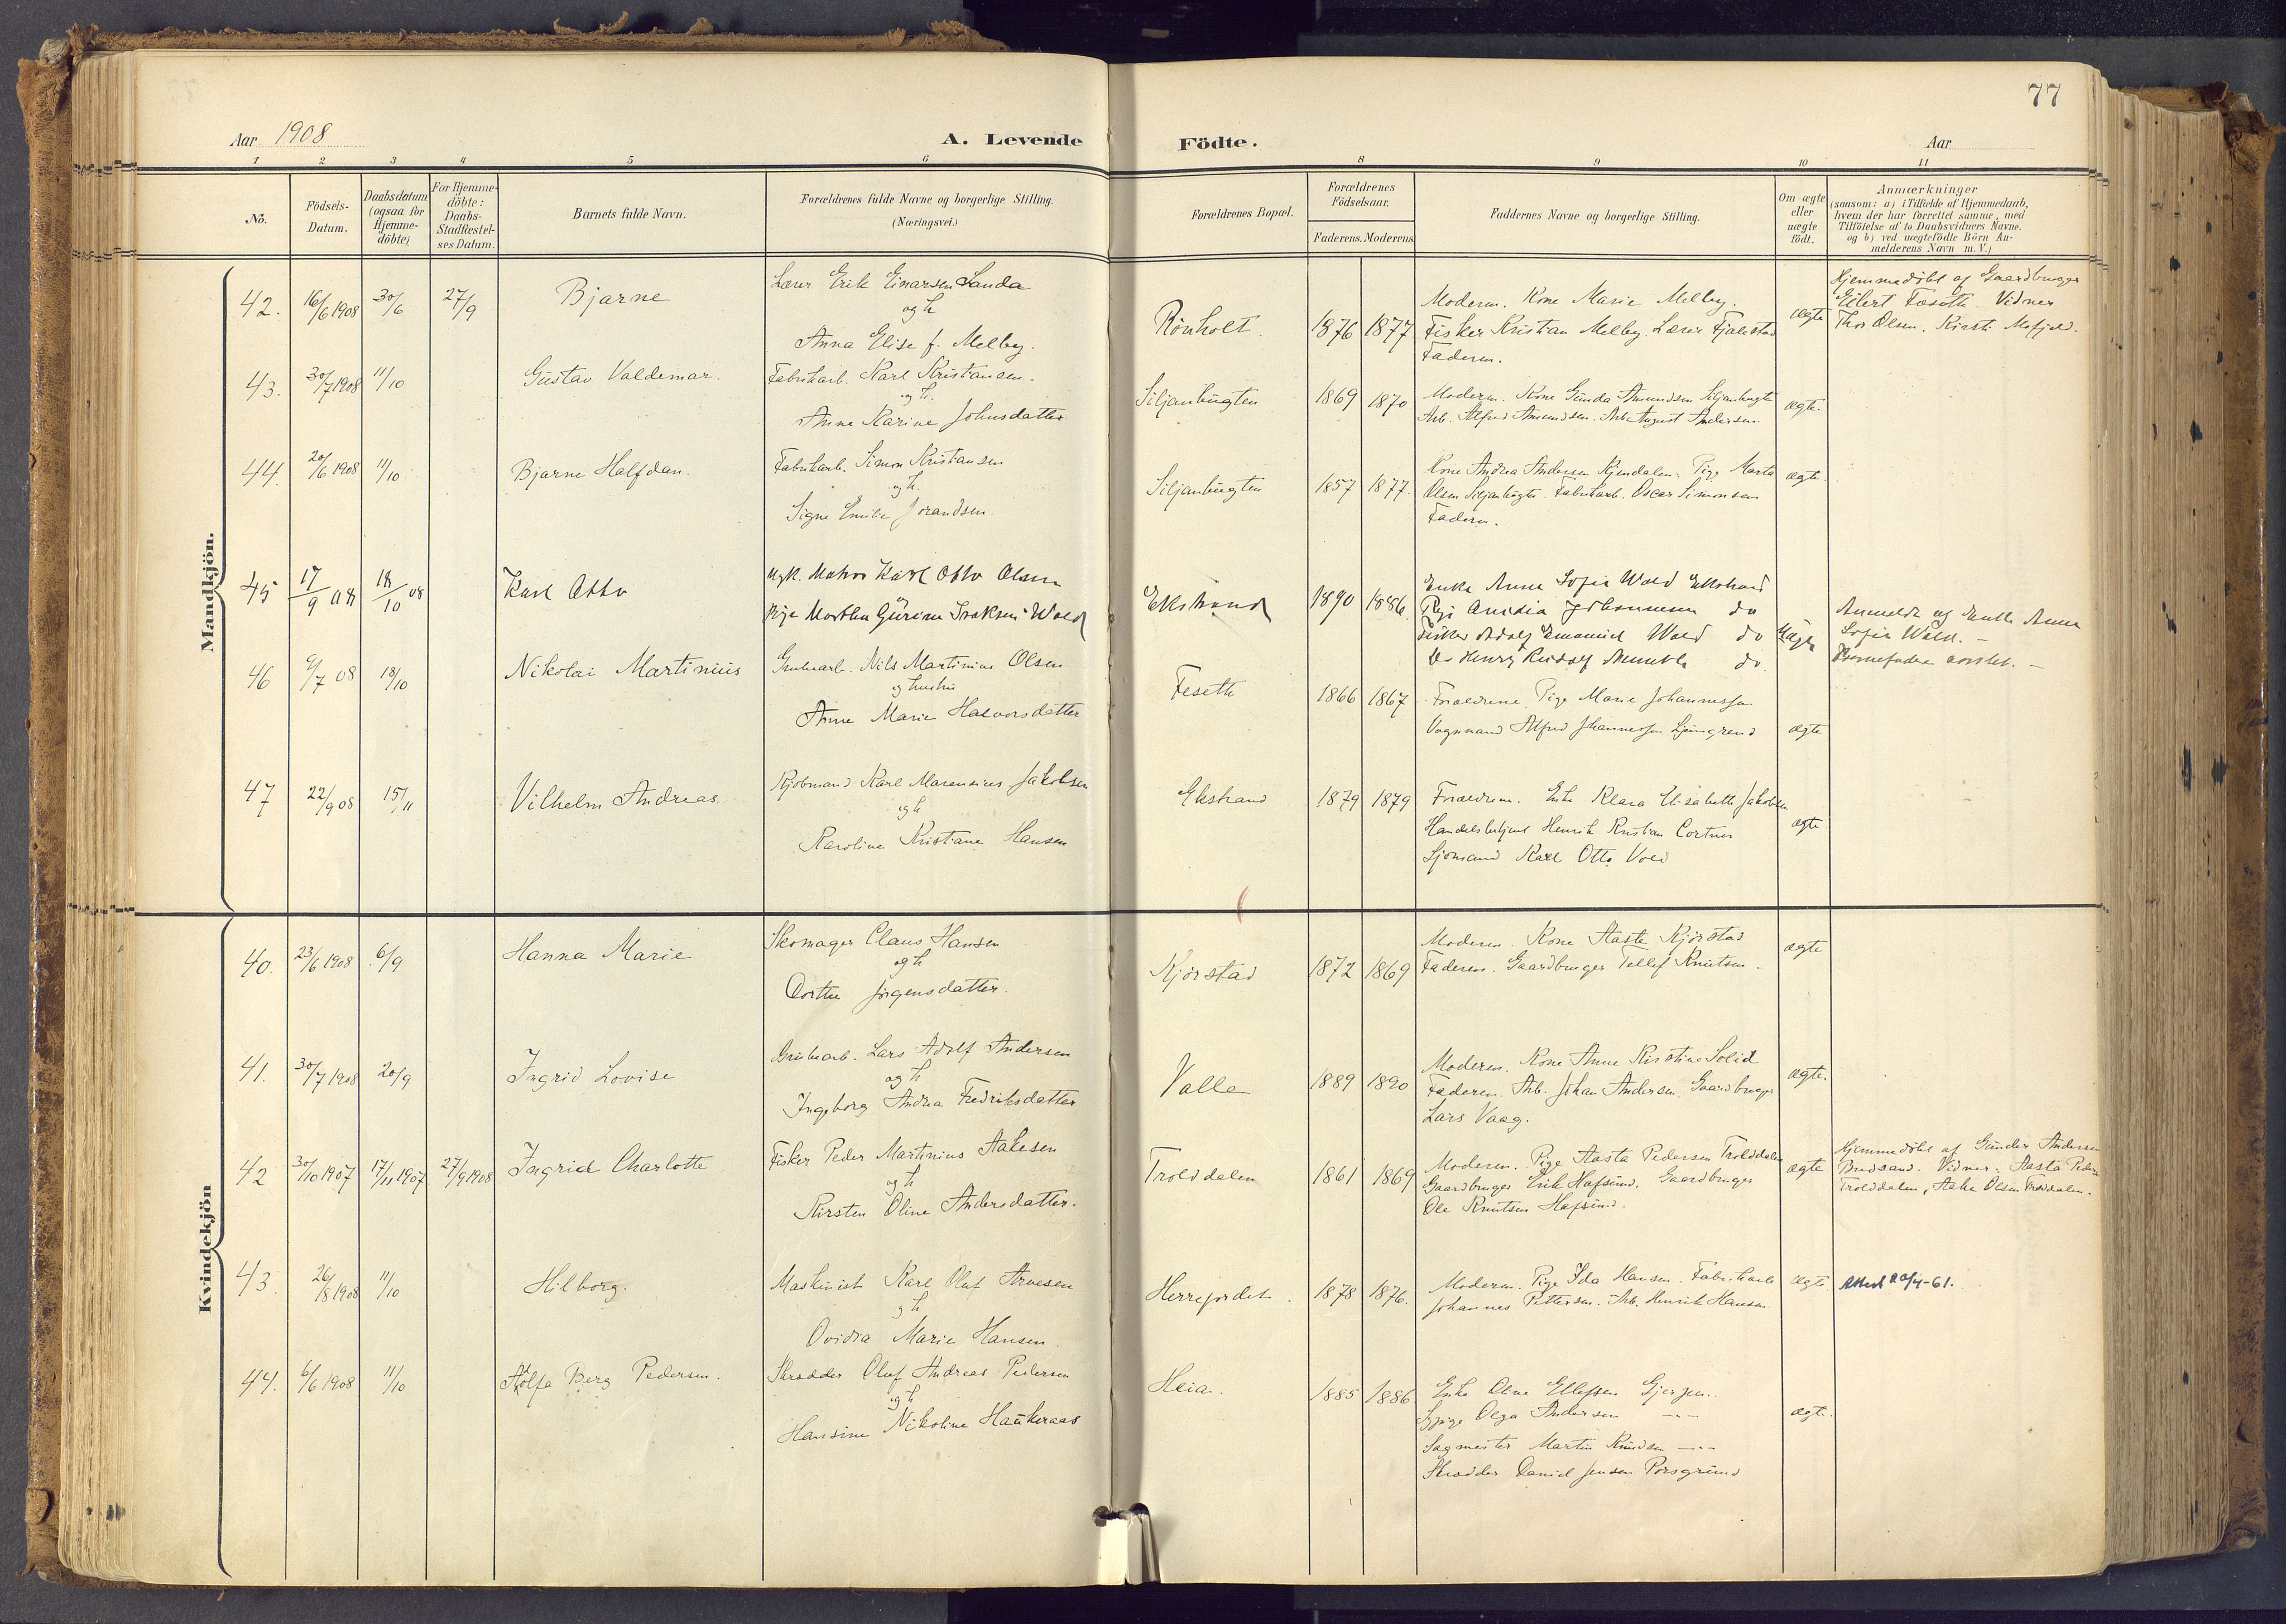 77
Aar 1908
A. Levende
Födte.
Aar
1 2 3 4 5 6 8 9 10 11
No.
Födsels-Datum.
Daabsdatum (ogsaa for Hjemme-döbte)
For Hjemme-döbte: Daabs-Stadfæstel-ses Datum.
Barnets fulde Navn.
Forældrenes fulde Navne og borgerlige Stilling. (Næringsvei.)
Forældrenes Bopæl.
Forældrenes Födselsaar.
Faderens. Moderens.
Faddernes Navne og borgerlige Stilling.
Om ægte eller uægte födt.
Anmærkninger
(saasom: a) i Tilfælde af Hjemmedaab,
hvem der har forrettet samme, med
Tilföielse af to Daabsvidners Navne.
og b) ved uægtefödte Börn An-
melderens Navn m. V.)
Mandkjön.
42. 16/6 1908 30/6 27/9 Bjarne
Lærer Erik Einarsen Landa
og h
Anna Elise f. Melby.
Rönholt 1876 1877
Moderen. Kone Marie Melby.
Fisker Kristian Melby. Lærer Fjalestad
Faderen.
ægte
Hjemmedöbt af Gaardbruger
Eilert Fæseth. Vidner
Thor Olsen, Kirsti Mofjeld.
43. 30/7 1908 11/10 Gustav Valdemar.
Fabrikarb. Karl Kristiansen.
og h.
Anne Karine Johnsdatter
Siljanbugten 1869 1870
Moderen. Kone Gunda Amundsen Siljanbugte
Arb. Alfred Amundsen. Arb. August Andersen.
ægte.
44. 20/6 1908 11/10 Bjarne Halfdan.
Fabrikarb. Simon Kristiansen
og h.
Signe Emilie Jorandsen.
Siljanbugten 1857 1877.
Kone Andrea Andersen Kjendalen. Pige Marta
Olsen Siljanbugte. Fabrikarb. Oscar Simonsen
Faderen.
ægte.
45 17/9 08 18/10 08 Karl Otto
Ugk. Matros Karl Otto Olsen
og
Pige Marthea Gurine Isaksen Wold
Ekstrand 1890 1886
Enke Anne Sofie Wold Ekstrand
Pige Johannesen do
Fisker Adolf Emanuel Wold do
Do Henry Rudolf do
Uægte
Anmeldt af Enke Anne
Sofie Wold. —
Barnefader —
46 9/7 08 18/10 Nikolai Martinius
Grubearb. Nils Martinius Olsen
og hustru
Anne Marie Halvorsdatter
Feseth 1866 1867
Forældrene. Pige Marie Johannessen
Vognmand Alfred Johannessen
ægte
47 22/9 08 15/11 Vilhelm Andreas
Kjöbmand Karl Marensius Jakobsen
og h
Karoline Kristiane Hansen
Ekstrand 1879 1879
Forældrene. Enke Klara Elisabeth Jakobsen
Handelsbetjent Henrik Kristian Cortner
Sjömand Karl Otto Vold
ægte
Kvindekjön
40. 23/6 1908 6/9 Hanna Marie
Skomager Claus Hansen
og h
Dorthe Jörgensdatter.
Kjörstad 1872 1869
Moderen. Kone Aaste Kjörstad
Faderen. Gaardbruger Tellef Knutsen.
ægte
41. 30/7 1908 20/9 Ingrid Lovise
Grubearb. Lars Adolf Andersen
og h
Ingeborg Andrea Fredriksdatter
Valle 1889 1890
Moderen. Kone Anne Kirstine Solid
Faderen. Arb. Johan Andersen. Gaardbruger
Lars Vaag.
ægte.
42 30/10 1907 17/11 1907 27/9 1908 Ingrid Charlotte
Fisker Peder Martinius Aakesen
og h
Kirsten Oline Andersdatter.
Trolddalen 1861 1869
Moderen. Pige Aasta Pedersen Trolddalen
Gaardbruger Erik Hafsund. Gaardbruger
Ole Knutsen Hafsund.
ægte
Hjemmedöbt af Gunder Andersen
Breisand. Vidner: Aasta Peders
Trolddalen, Aake Olsen Trolddalen.
43. 26/8 1908 11/10 Hilborg.
Maskinist Karl Oluf Arvesen
og h
Ovidia Marie Hansen.
Herrejordet. 1878 1876.
Moderen. Pige Ida Hansen. Fabrikarb
Johannes Pettersen. Arb. Henrik Hansen.
ægte.
Attest 20/4-61.
44. 6/6 1908 11/10 Adolfa Berg Pedersen.
Skrædder Oluf Andreas Pedersen
og h
Hansine Nikoline Haukeraas
Heia. 1885 1886
Enke Oline Ellefsen
Sypige Olga Andersen — " —
Sagmester Martin Knudsen — " —
Skrædder Daniel Jensen Porsgrund
ægte.